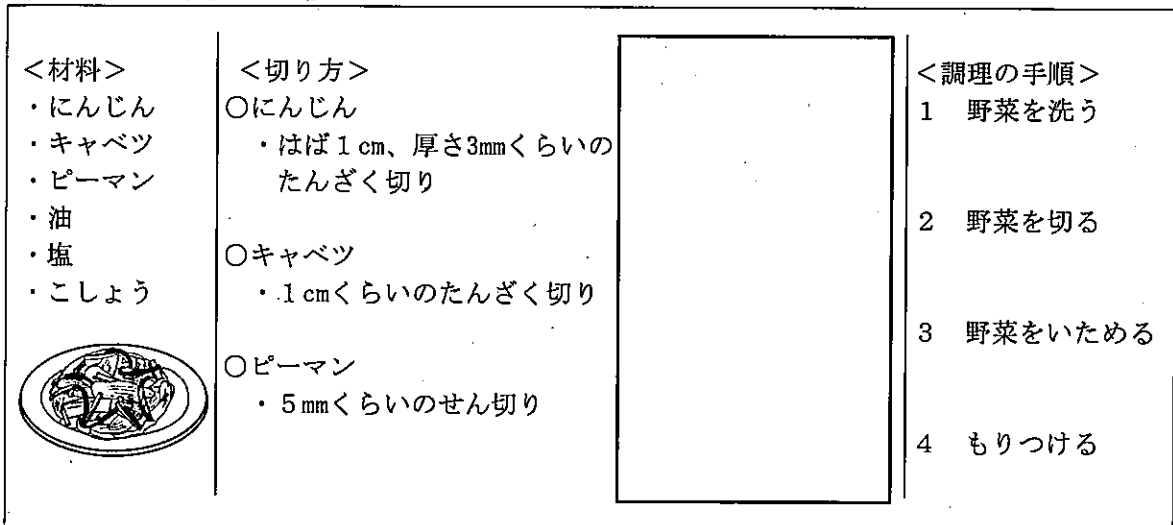 ＜材料＞
・にんじん
・キャベツ
・ピーマン
・油
・塩
・こしょう
＜切り方＞
○にんじん
・はば１cm、厚さ3mmくらいの
たんざく切り
○キャベツ
・１cmくらいのたんざく切り
○ピーマン
・５mmくらいのせん切り
＜調理の手順＞
１　野菜を洗う
２　野菜を切る
３　野菜をいためる
４　もりつける